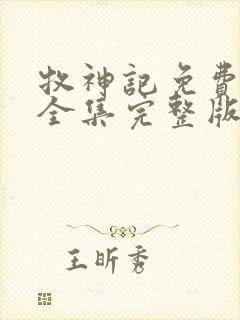 牧神記免費
全集完整版
王昕秀